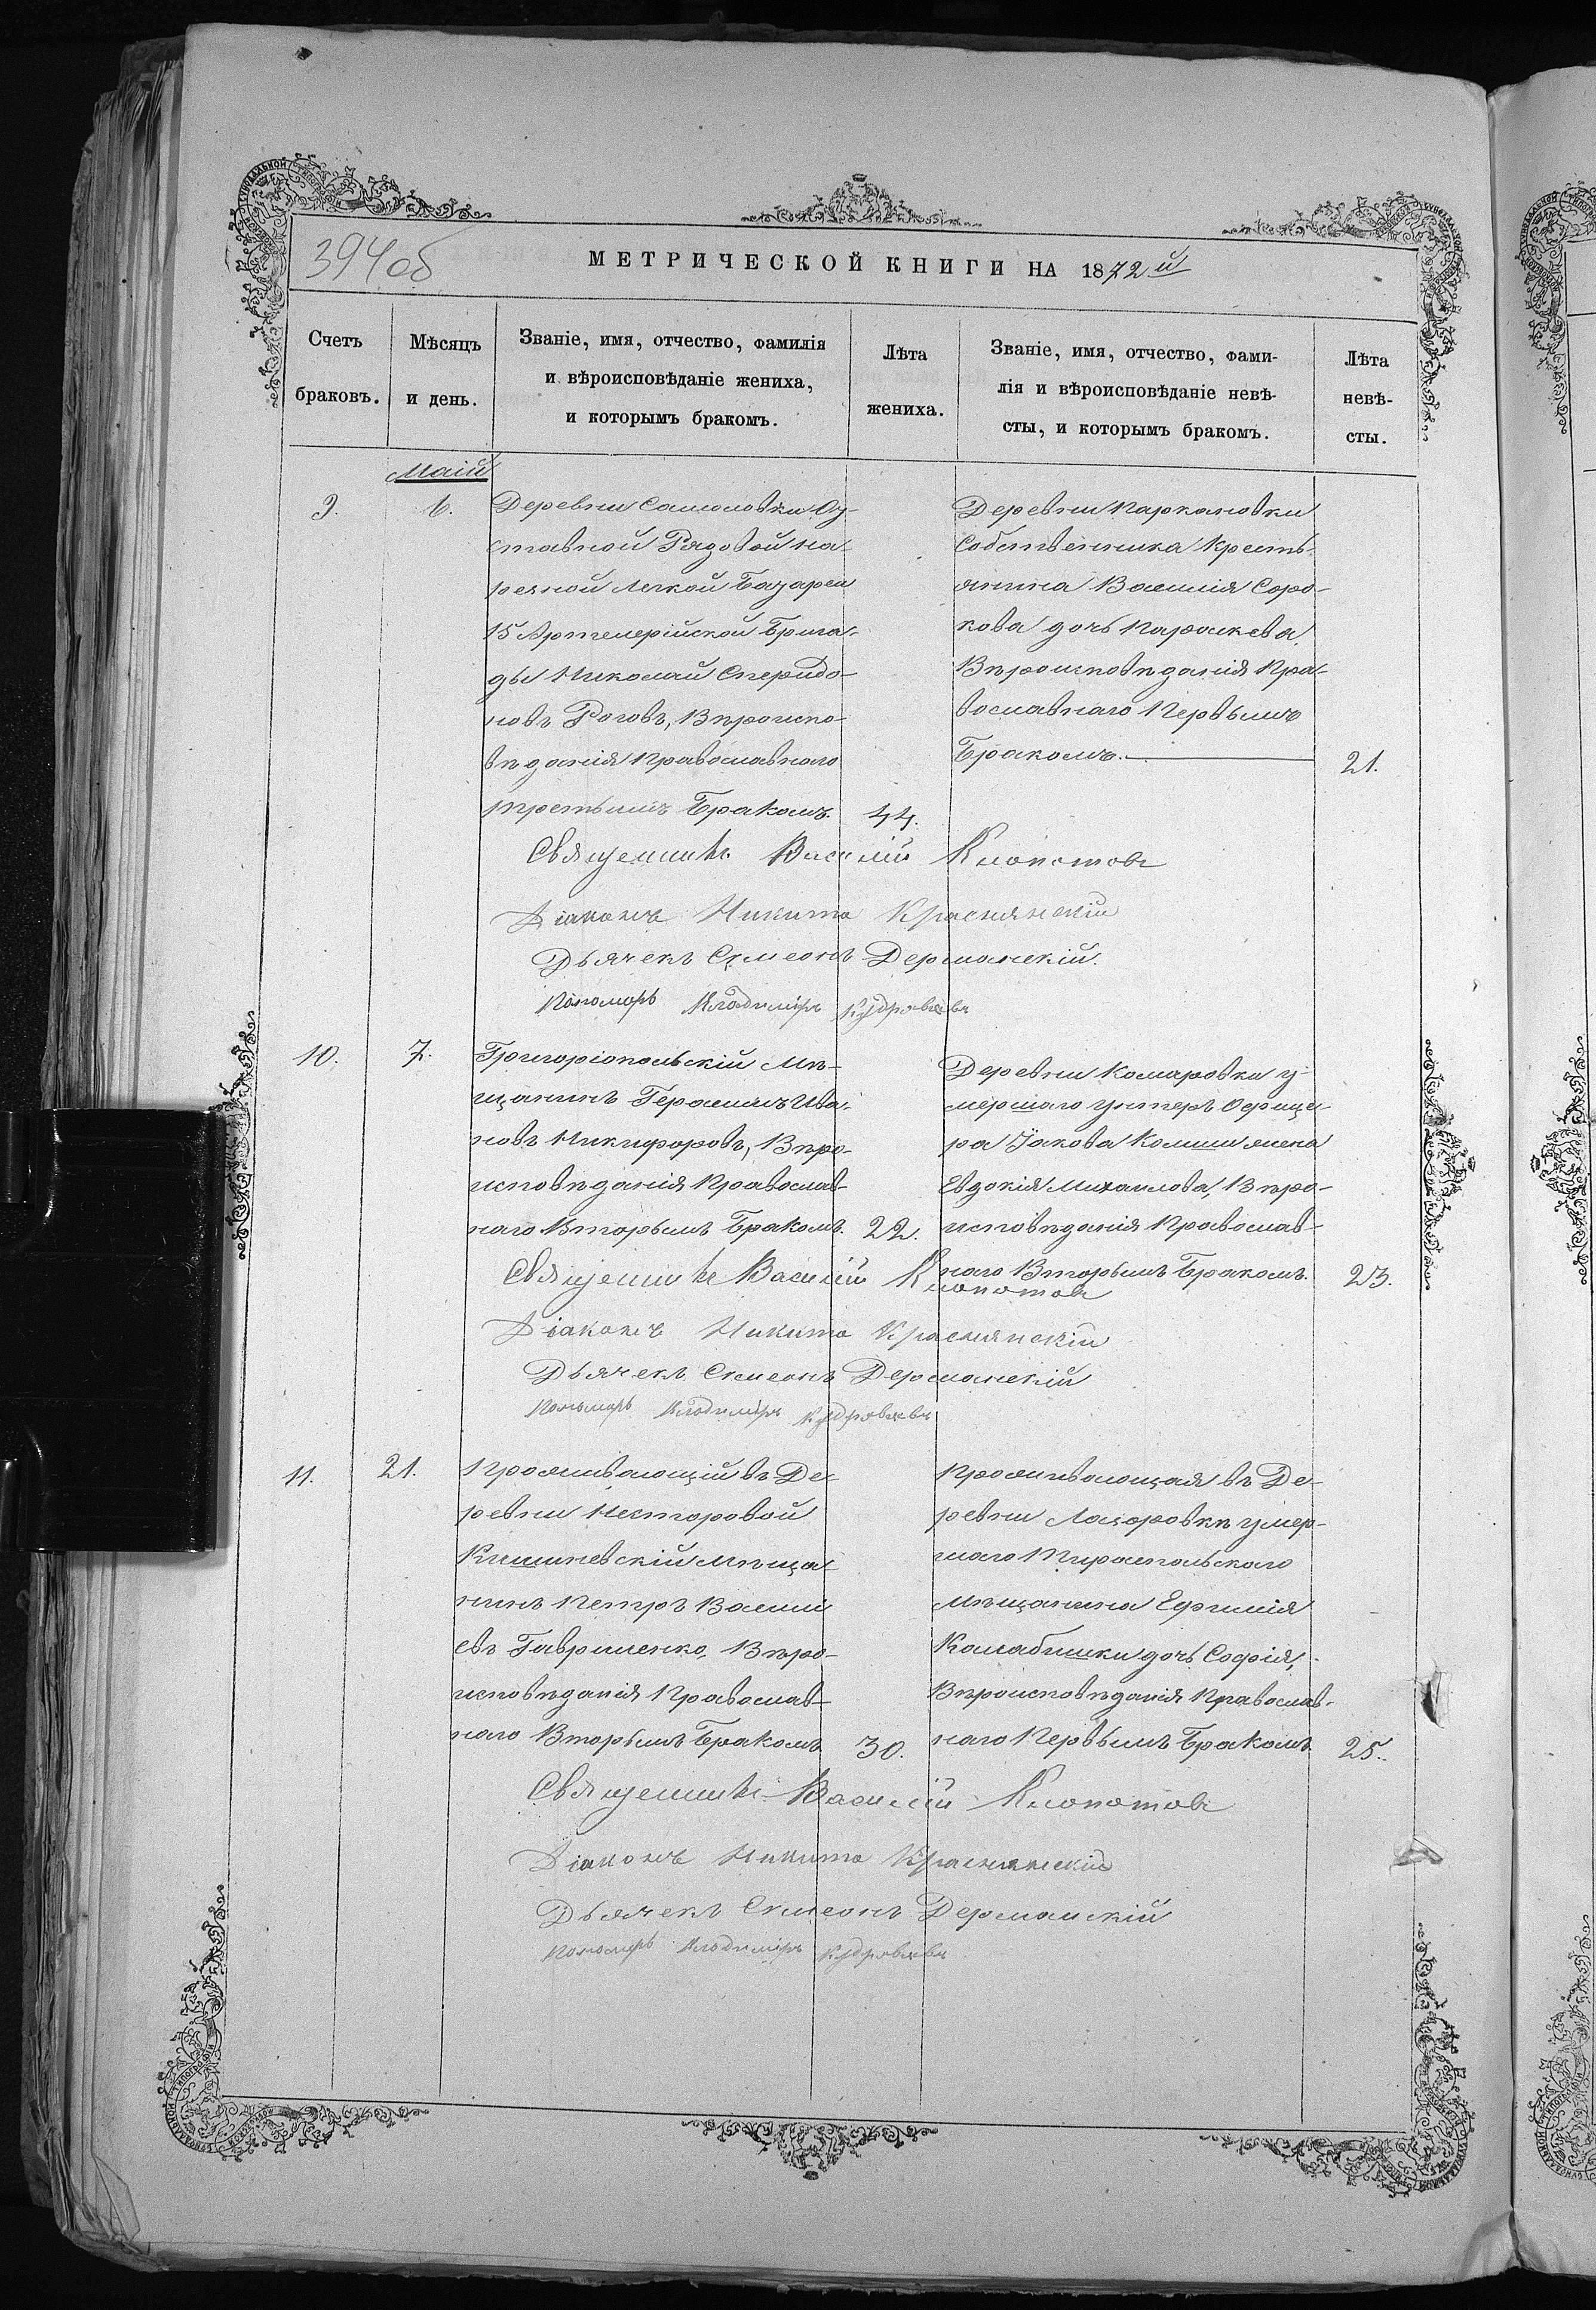 394об
МЕТРИЧЕСКОЙ КНИГИ НА 1872й
Счетъ браковъ.
Мѣсяцъ и день.
Званіе, имя, отчество, фамилія
и вѣроисповѣданіе жениха,
и которымъ бракомъ.
Лѣта жениха.
Званіе, имя, отчество, фами-
лія и вѣроисповѣданіе невѣ-
сты, и которымъ бракомъ.
Лѣта невѣ-
сты.
Маій
9.
6.
Деревни
ставной Рядовой На
резной Легкой Батареи
15 Артелерійской Брига-
ды Николай Спиридо-
новъ Роговъ, Вѣроиспо-
вѣданія Православнаго
третьимъ Бракомъ.
44.
Деревни Паркановки
Собственника Кресть-
янина Василія Соро-
кова дочь Параскева
Вѣроисповѣданія Пра-
вославнаго Первымъ
Бракомъ.
21.
Священникъ Василій Клопотовъ
Діаконъ Никита Краснянскій
Дьячекъ Симеонъ Дерманскій.
Пономарь Владиміръ
10.
7.
Григоріопольскій Мѣ-
щанинъ Герасимъ Ива-
новъ Никифоровъ, Вѣро-
исповѣданія Православ-
наго Вторымъ Бракомъ.
22.
Деревни Комаровки у-
мершаго унтеръ Офице-
ра Іакова жена
Евдокія Михаилова, Вѣро-
исповѣданія Православ-
наго Вторымъ Бракомъ.
23.
Священникъ Василій Клопотовъ
Діаконъ Никита Краснянскій
Дьячекъ Симеонъ Дерманскій
Пономарь Владиміръ
11.
21.
Проживающій въ Де-
ревни Несторовой
Кишиневскій Мѣща-
нинъ Петръ Васили
евъ Гавриленко, Вѣро-
исповѣданія Православ-
наго Вторымъ Бракомъ
30.
Проживающая въ Де-
ревни умер-
шаго Тираспольскаго
мѣщанина Ефимія
дочь Софія,
Вѣроисповѣданія Православ-
наго Первымъ Бракомъ.
25.
Священникъ Василій Клопотовъ
Діаконъ Никита Краснянскій
Дьячекъ Симеонъ Дерманскій
Пономарь Владиміръ